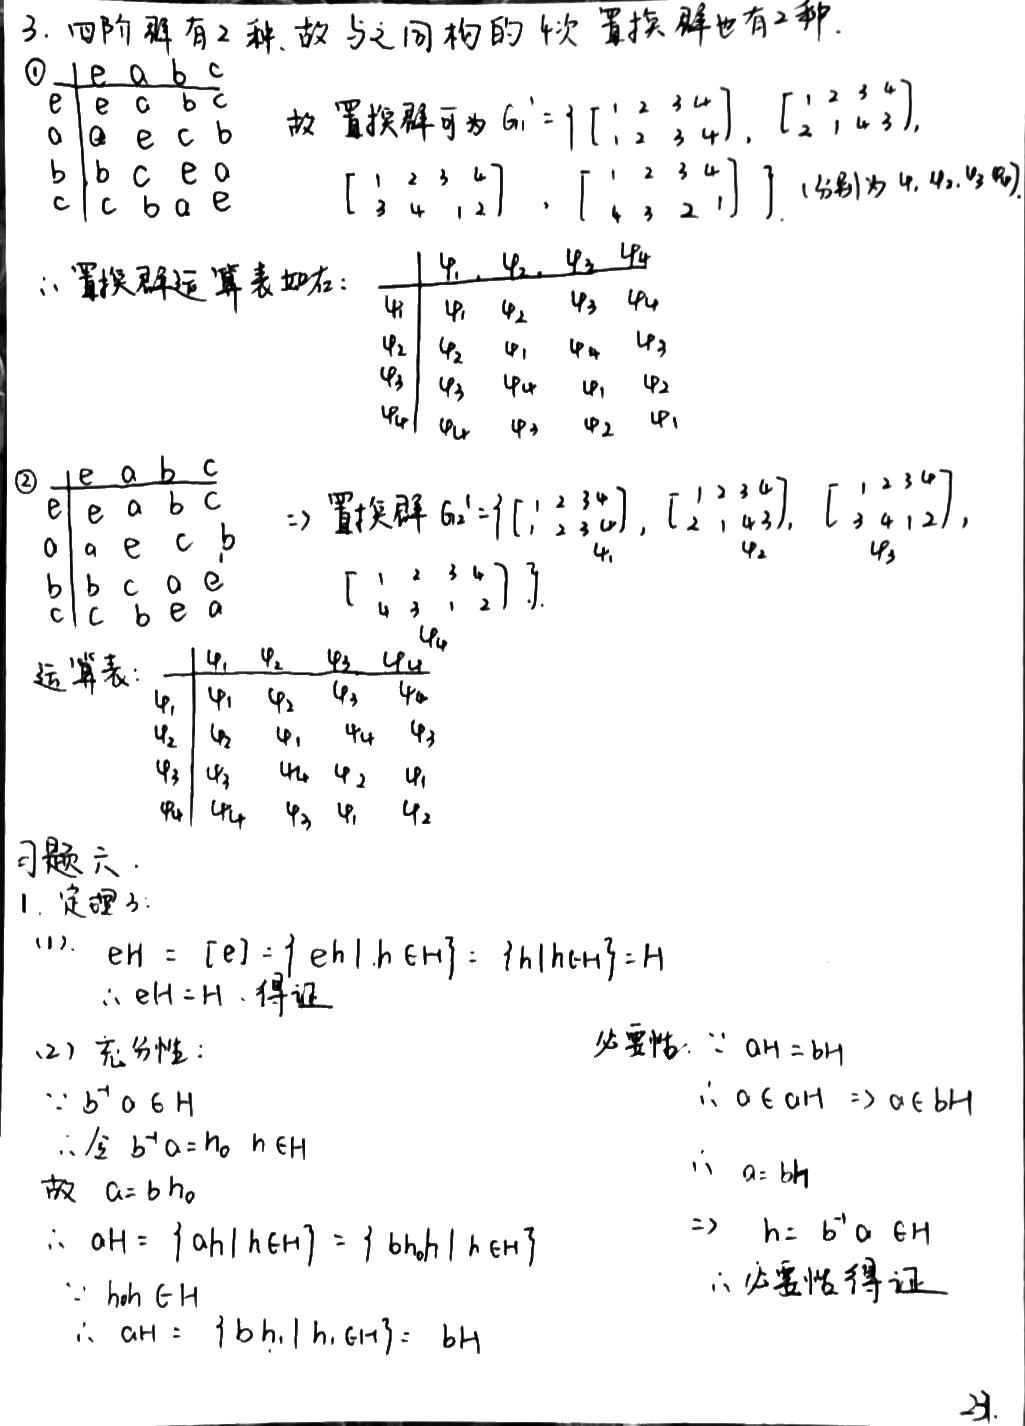 3. 四阶群有2种、故与之同构的4次 置换群也有2种.
① e a b c
e e a b c
a a e c b
b b c e a
c c b a e
故 置换群可为 G₁' = { [1 2 3 4 / 1 2 3 4], [1 2 3 4 / 2 1 4 3],
[1 2 3 4 / 3 4 1 2], [1 2 3 4 / 4 3 2 1] }. (分别为 φ₁, φ₂, φ₃ φ₄).
∴ 置换群运算表如右:
φ₁ φ₂ φ₃ φ₄
φ₁ φ₁ φ₂ φ₃ φ₄
φ₂ φ₂ φ₁ φ₄ φ₃
φ₃ φ₃ φ₄ φ₁ φ₂
φ₄ φ₄ φ₃ φ₂ φ₁
② e a b c
e e a b c
a a e c b
b b c a e
c c b e a
=> 置换群 G₂' = { [1 2 3 4 / 1 2 3 4], [1 2 3 4 / 2 1 4 3], [1 2 3 4 / 3 4 1 2],
φ₁ φ₂ φ₃
[1 2 3 4 / 4 3 1 2] }.
φ₄
运算表:
φ₁ φ₂ φ₃ φ₄
φ₁ φ₁ φ₂ φ₃ φ₄
φ₂ φ₂ φ₁ φ₄ φ₃
φ₃ φ₃ φ₄ φ₂ φ₁
φ₄ φ₄ φ₃ φ₁ φ₂
习题六.
1. 定理3:
(1). eH = [e] = { eh | h∈H } = { h | h∈H } = H
∴ eH = H. 得证
(2) 充分性:
∵ b⁻¹a ∈ H
∴ 令 b⁻¹a = h₀ h∈H
故 a = bh₀
∴ aH = { ah | h∈H } = { bh₀h | h∈H }
∵ h₀h ∈ H
∴ aH = { bh₁ | h₁∈H } = bH
必要性: ∵ aH = bH
∴ a ∈ aH => a ∈ bH
∴ a = bh
=> h = b⁻¹a ∈ H
∴ 必要性得证